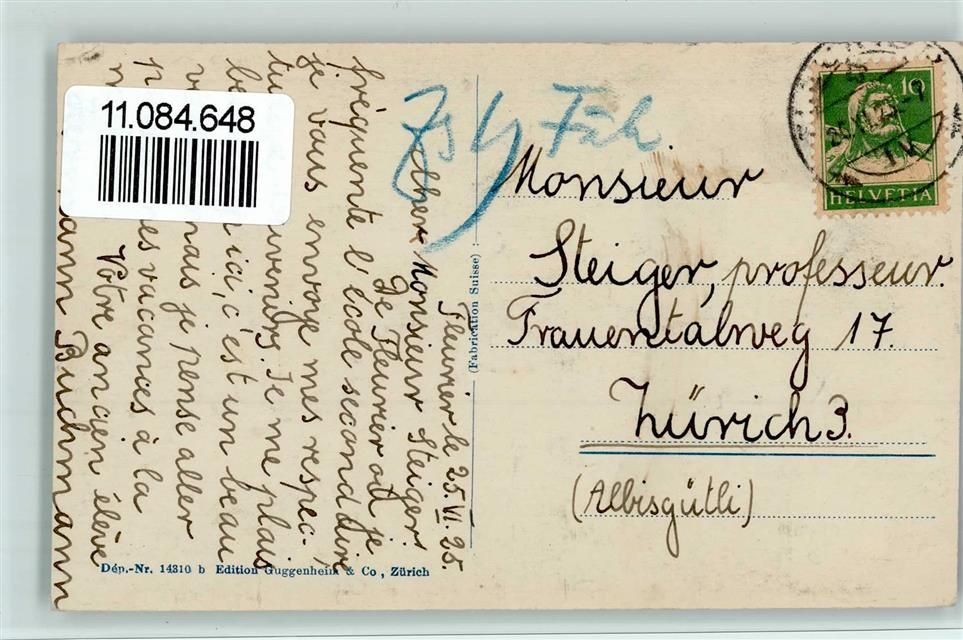 11.084.648
Fleurier le 25. VI 25.
Cher Monsieur Steiger!
De Fleurier où je
fréquente l'école secondaire
je vous envoye mes respec-
tu venirs. Je me plais
be ici, c'est un beau
v mais je pense aller
p es vacances à la
n
Votre ancien élève
mann Buchmann
Fäh
Monsieur
Steiger, professeur.
Frauentalweg 17.
Zürich 3.
(Albisgütli)
10
HELVETIA
(Fabrication Suisse)
Dép.-Nr. 14310 b Edition Guggenheim & Co, Zürich